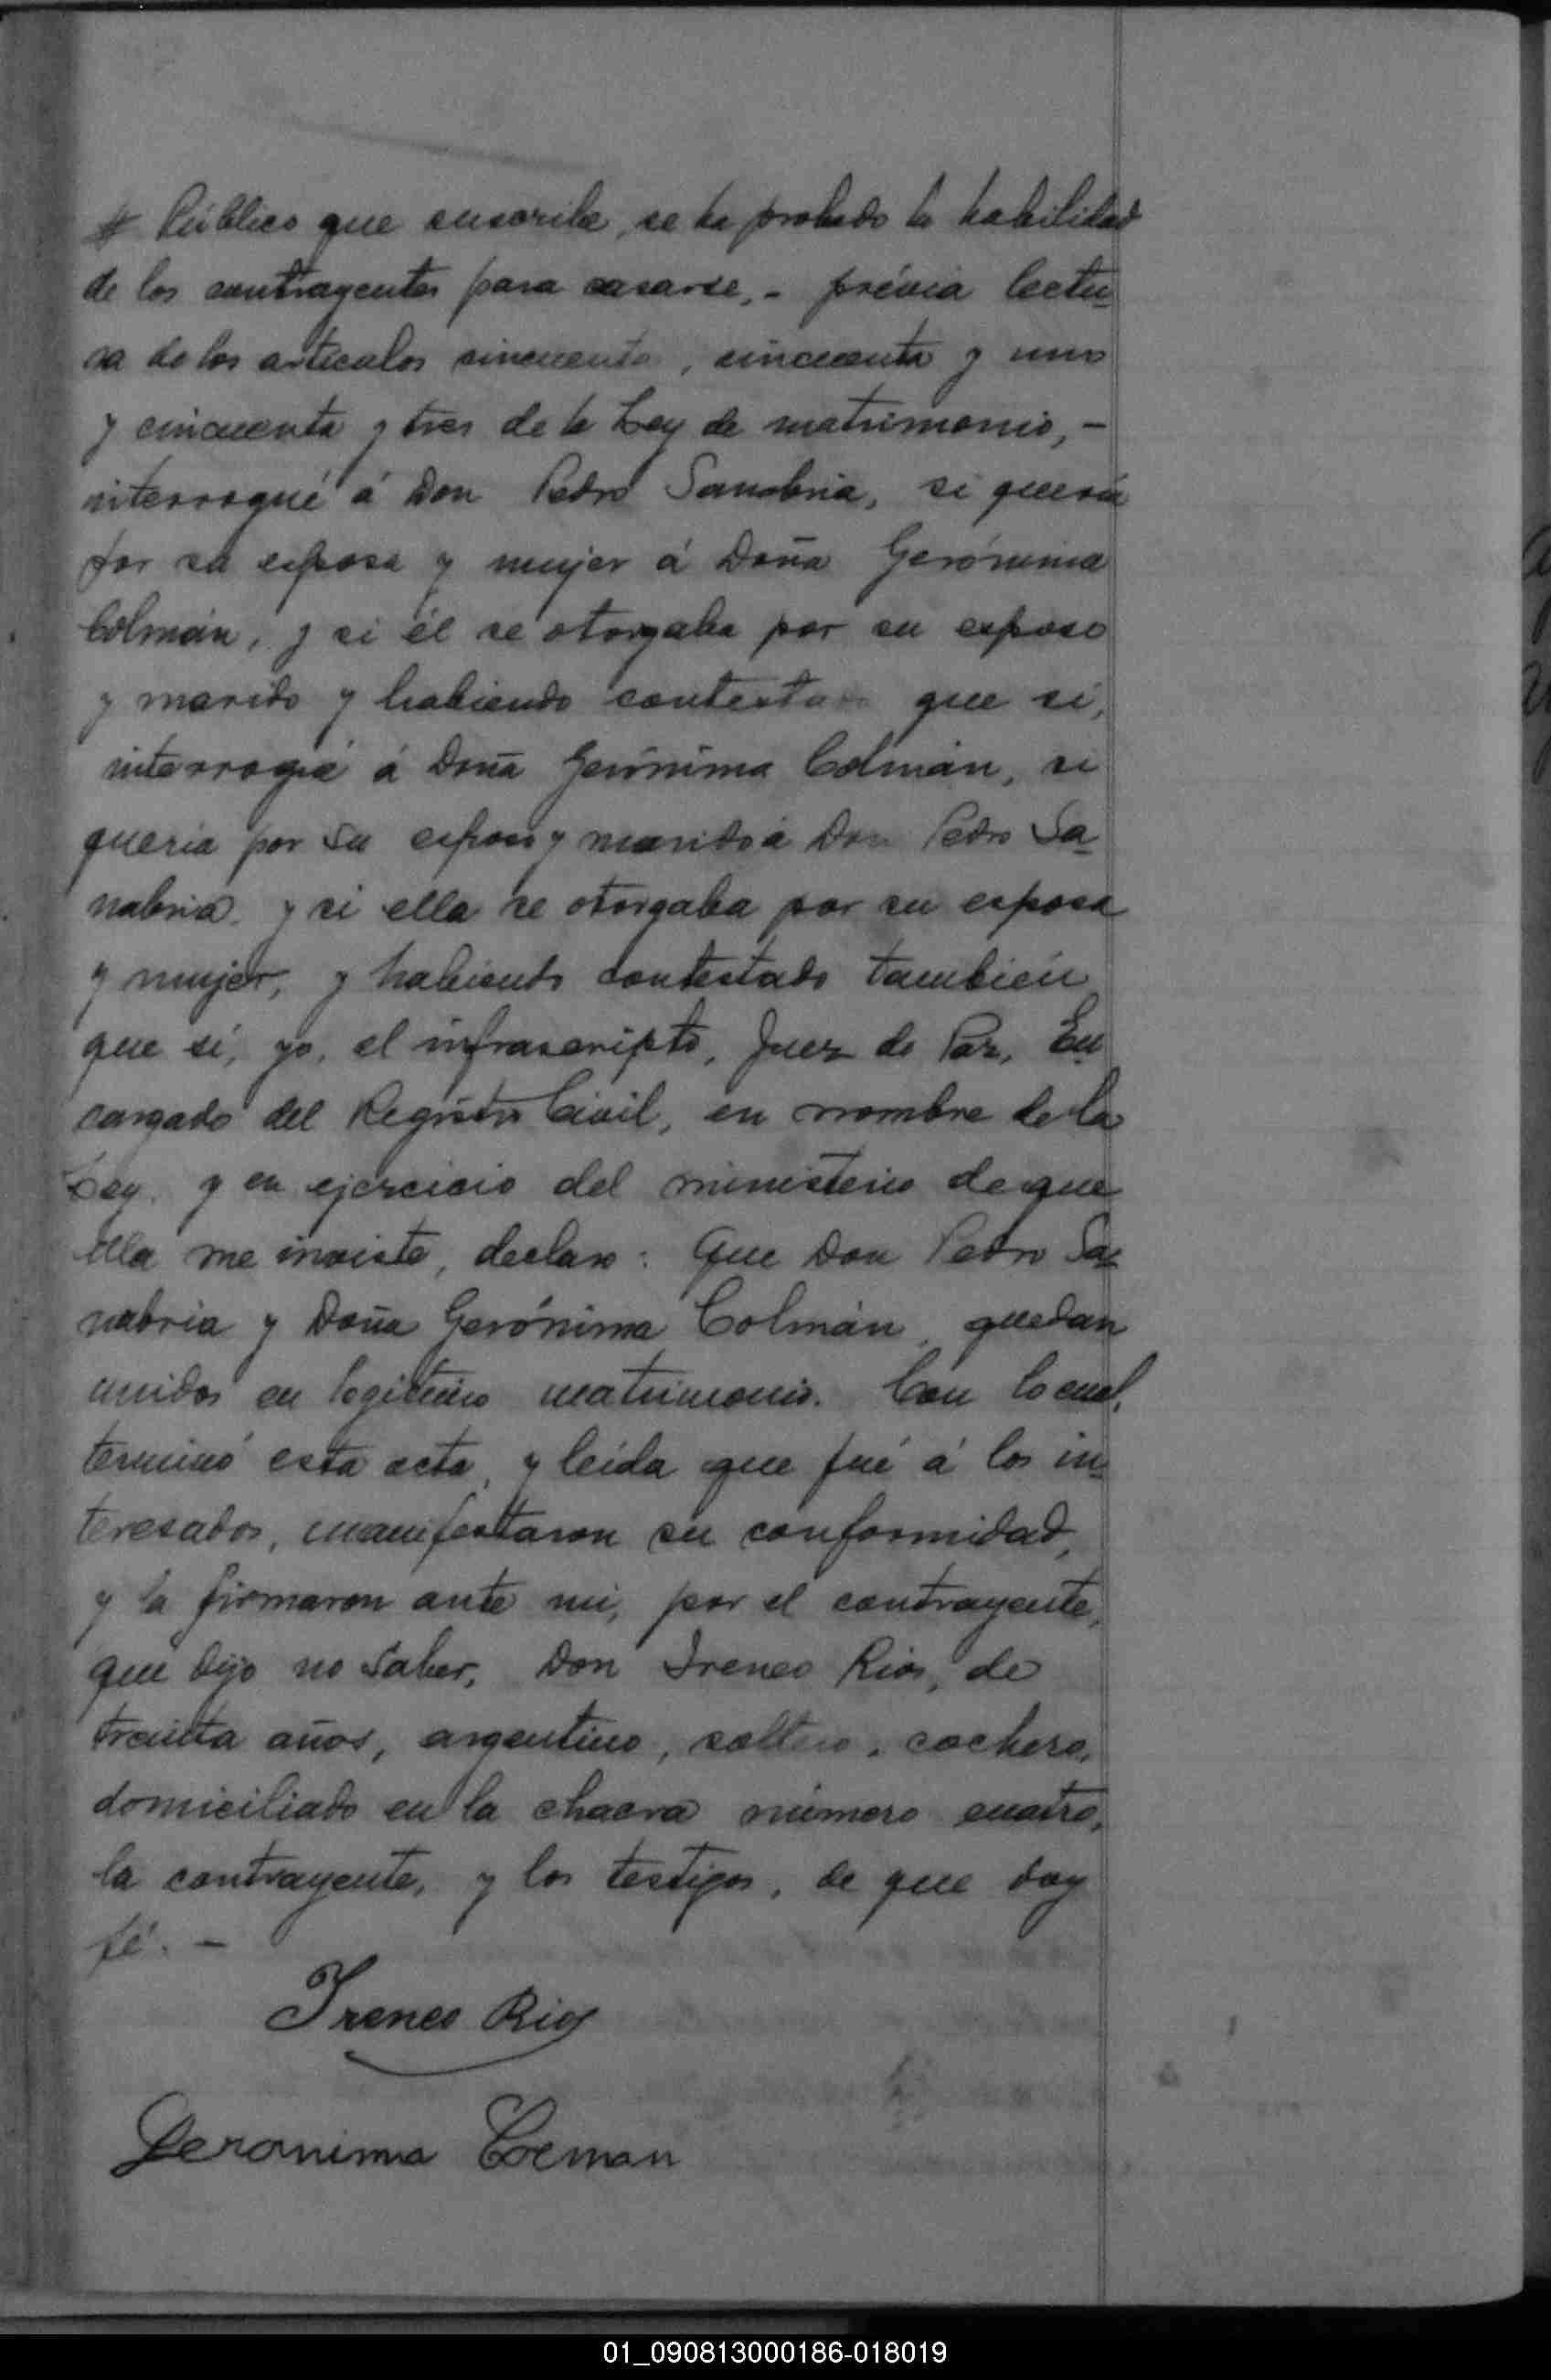 # Público que suscribe, se ha probado la habilidad
de los contrayentes para casarse,- prévia lectu-
ra de los artículos cincuenta, cincuenta y uno
y cincuenta y tres de la Ley de matrimonio,-
interrogué á Don Pedro Sanabria, si quería
por su esposa y mujer á Doña Gerónima
Colmán, y si él se otorgaba por su esposo
y marido y habiendo contestado que sí,
interrogué á Doña Gerónima Colmán, si
quería por su esposo y marido á Don Pedro Sa-
nabria y si ella se otorgaba por su esposa
y mujer, y habiendo contestado también
que sí, yo, el infrascripto, Juez de Paz, En-
cargado del Registro Civil, en nombre de la
Ley y en ejercicio del ministerio de que
ella me inviste, declaro: Que Don Pedro Sa-
nabria y Doña Gerónima Colmán, quedan
unidos en legítimo matrimonio. Con lo cual,
terminó esta acta, y leída que fué á los in-
teresados, manifestaron su conformidad,
y la firmaron ante mí, por el contrayente,
que dijo no saber, Don Ireneo Rios, de
treinta años, argentino, soltero, cochero,
domiciliado en la chacra número cuatro,
la contrayente, y los testigos, de que doy
fé.-
Ireneo Rios
Geronima Colman
01_090813000186-018019